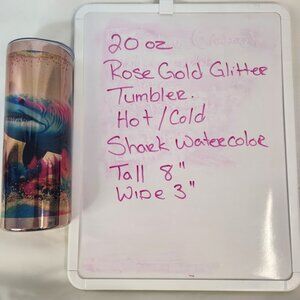 20 oz
Rose Gold Glitter
Tumbler.
Hot/Cold
Shark Watercolor
Tall 8"
Wide 3"